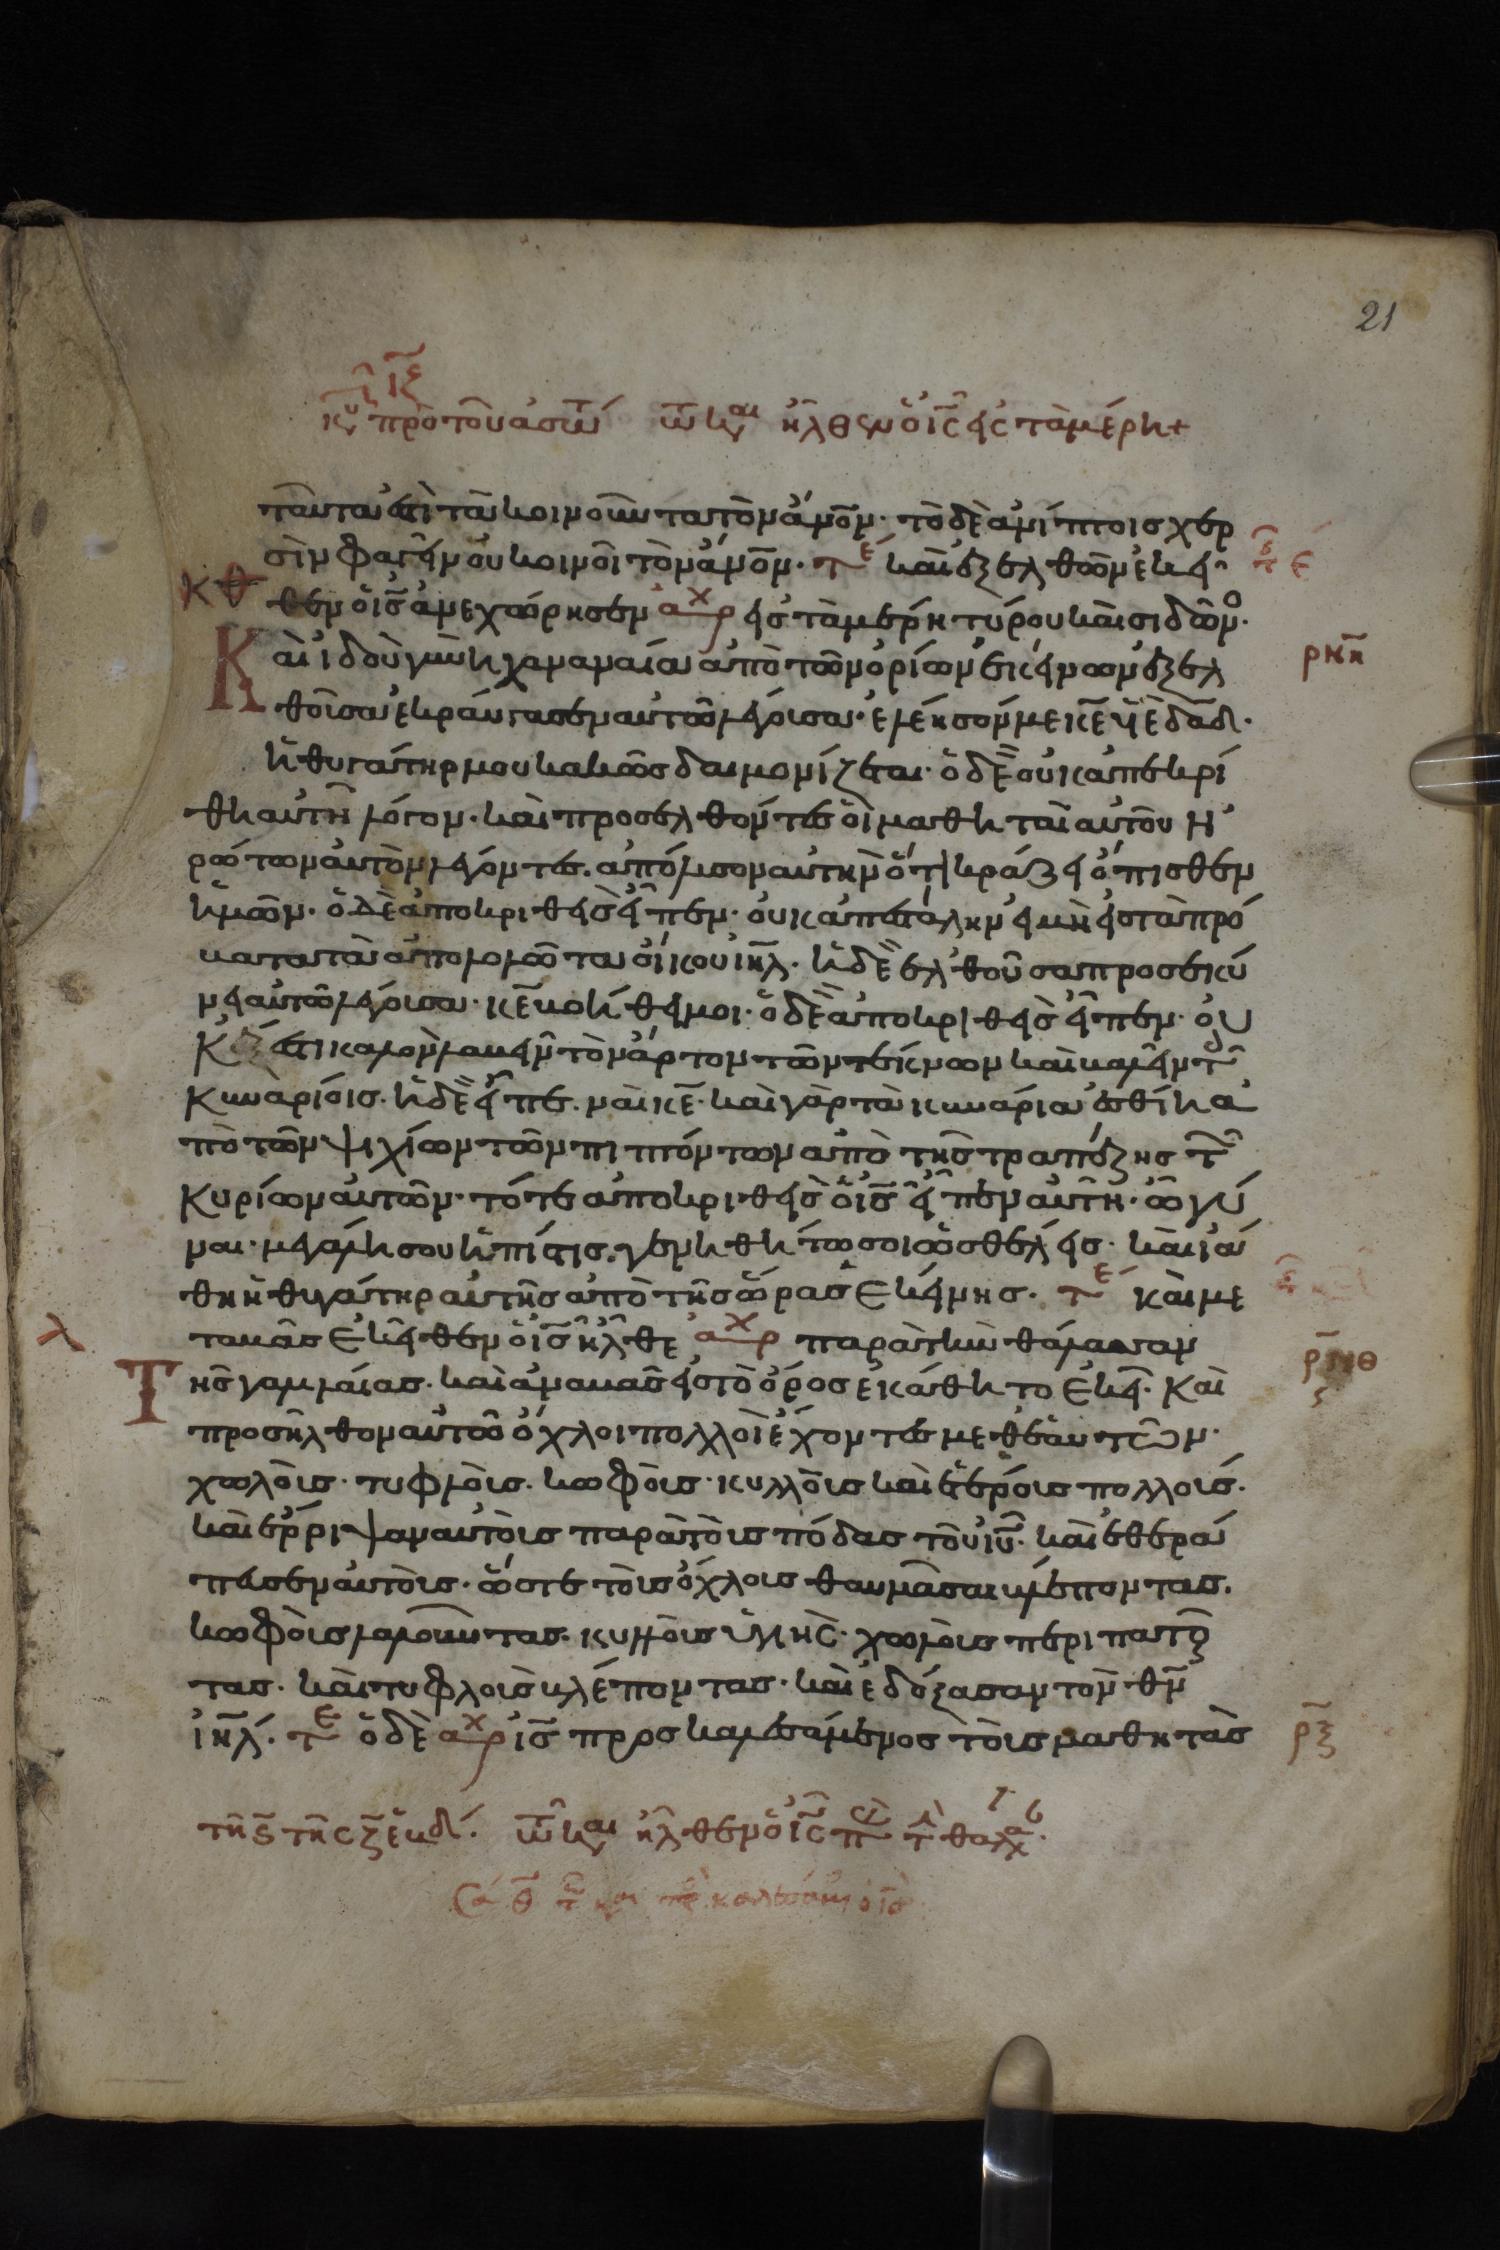 κυ προ του ασωτ τω κ αι ηλθεν ὁ ις εις τα μέρη+
21
ταῦτα ἐστὶ τὰ κοινοῦντα τὸν ἄνον· τὸ δὲ ἀνίπτοις χερ
σὶν φαγεῖν οὐ κοινοῖ τὸν ἄνον· τε καὶ ἐξελθὼν ἐκεῖ
κθ θεν ὁ ις ἀνεχώρησεν αρχ εἰς τὰ μέρη τύρου καὶ σιδῶνο·
Καὶ ἰδοὺ γυνὴ χαναναία ἀπὸ τῶν ὁρίων ἐκείνων ἐξελ ρνη
θοῦσα ἐκραύγασεν αὐτῶ λέγουσα· ἐλέησόν με κε υἱὲ δαδ·
ἡ θυγάτηρ μου κακῶς δαιμονίζεται· ὁ δὲ οὐκ ἀπεκρί
θη αὐτῆ λόγον· καὶ προσελθόντες οἱ μαθηταὶ αὐτοῦ ἠ
ρώτων αὐτὸν λέγοντες· ἀπόλυσον αὐτὴν ὅτι κράζει ὄπισθεν
ἡμῶν· ὁ δὲ ἀποκριθεὶς εἶπεν· οὐκ ἀπεστάλην εἰ μὴ εἰς τὰ πρό
βατα τὰ ἀπολωλότα οἴκου ιηλ· ἡ δὲ ἐλθοῦσα προσεκύ
νει αὐτῶ λέγουσα· κε βοήθει μοι· ὁ δὲ ἀποκριθεὶς εἶπεν· οὐ
κ ἔστι καλὸν λαβεῖν τὸν ἄρτον τῶν τέκνων καὶ βαλεῖν τ
κυναρίοις· ἡ δὲ εἶπε· ναὶ κε· καὶ γὰρ τὰ κυνάρια ἐσθίει ἀ
πὸ τῶν ψιχίων τῶν πιπτόντων ἀπὸ τῆς τραπέζης τ
κυρίων αὐτῶν· τότε ἀποκριθεὶς ὁ ις εἶπεν αὐτῆ· ὦ γύ
ναι· μεγάλη σου ἡ πίστις· γενηθήτω σοι ὡς θέλεις· καὶ ἰά
θη ἡ θυγάτηρ αὐτῆς ἀπὸ τῆς ὥρας ἐκείνης· τε καὶ με
λ ταβὰς ἐκεῖθεν ὁ ις ἦλθε αρχ παρὰ τὴν θάλασσαν ρνθ
Τῆς γαλιλαίας· καὶ ἀναβὰς εἰς τὸ ὄρος ἐκάθητο ἐκεῖ· Καὶ
προσῆλθον αὐτῶ ὄχλοι πολλοὶ ἔχοντες μεθ ἑαυτῶν·
χωλοὺς· τυφλοὺς· κωφοὺς· κυλλοὺς καὶ ἑτέρους πολλούς·
καὶ ἔρριψαν αὐτοὺς παρὰ τοὺς πόδας τοῦ ιυ· καὶ ἐθερά
πευσεν αὐτούς· ὥστε τοὺς ὄχλους θαυμάσαι βλέποντας·
κωφοὺς λαλοῦντας· κυλλοὺς ὑγιεῖς· χωλοὺς περιπατοῦ
τας· καὶ τυφλοὺς βλέποντας· καὶ ἐδόξασαν τὸν θν
ιηλ· τε ὁ δὲ αρχ ις προσκαλεσάμενος τοὺς μαθητὰς ρξ
τῆ ϛ τῆς ζ ἑβδ. τω κ αι ἦλθεν ὁ ις π τ θαλ